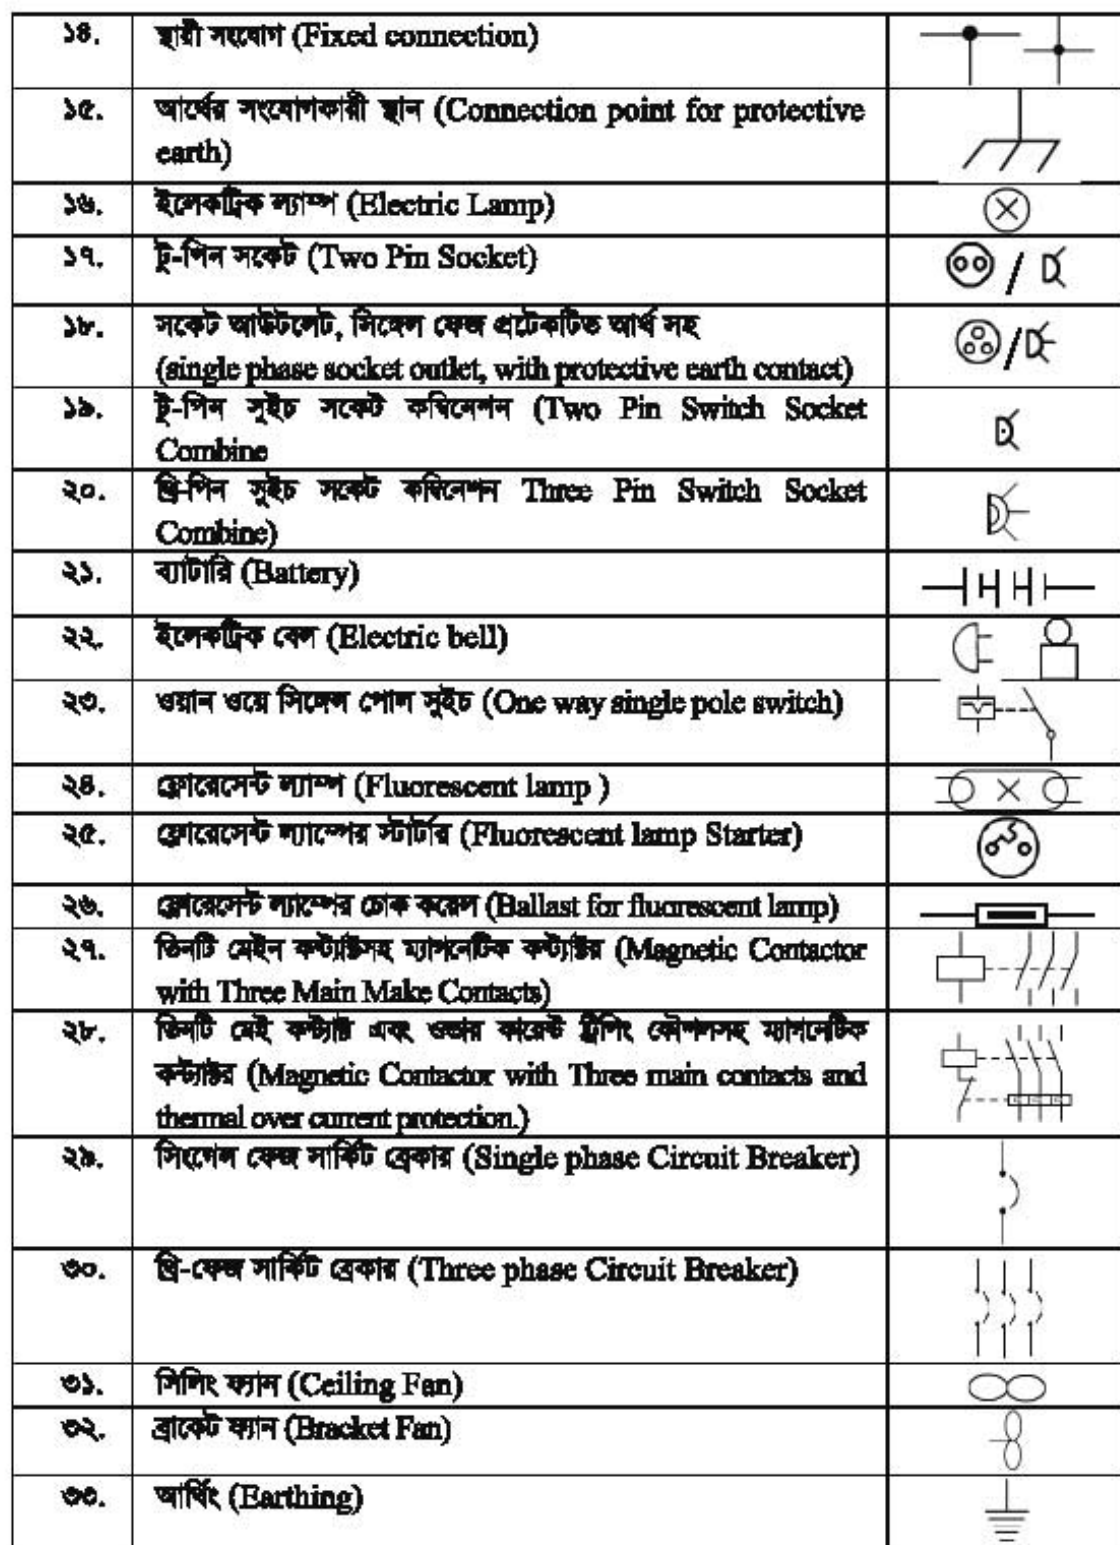 ১৪. স্থায়ী সহযোগ (Fixed connection)
১৫. আর্থের সংযোগকারী স্থান (Connection point for protective
earth)
১৬. ইলেকট্রিক ল্যাম্প (Electric Lamp)
১৭. টু-পিন সকেট (Two Pin Socket)
১৮. সকেট আউটলেট, সিঙ্গেল ফেজ প্রটেকটিত আর্থ সহ
(single phase socket outlet, with protective earth contact)
১৯. টু-পিন সুইচ সকেট কম্বিনেশন (Two Pin Switch Socket
Combine
২০. থ্রি-পিন সুইচ সকেট কম্বিনেশন Three Pin Switch Socket
Combine)
২১. ব্যাটারি (Battery)
২২. ইলেকট্রিক বেল (Electric bell)
২৩. ওয়ান ওয়ে সিঙ্গেল পোল সুইচ (One way single pole switch)
২৪. ফ্লোরেসেন্ট ল্যাম্প (Fluorescent lamp )
২৫. ফ্লোরেসেন্ট ল্যাম্পের স্টার্টার (Fluorescent lamp Starter)
২৬. ফ্লোরেসেন্ট ল্যাম্পের চোক কয়েল (Ballast for fluorescent lamp)
২৭. তিনটি মেইন কন্ট্যাক্টসহ ম্যাগনেটিক কন্ট্যাক্টর (Magnetic Contactor
with Three Main Make Contacts)
২৮. তিনটি মেই কন্ট্যাক্ট এবং ওভার কারেন্ট ট্রিপিং কৌশলসহ ম্যাগনেটিক
কন্ট্যাক্টর (Magnetic Contactor with Three main contacts and
thermal over current protection.)
২৯. সিংগেল ফেজ সার্কিট ব্রেকার (Single phase Circuit Breaker)
৩০. থ্রি-ফেজ সার্কিট ব্রেকার (Three phase Circuit Breaker)
৩১. সিলিং ফ্যান (Ceiling Fan)
৩২. ব্রাকেট ফ্যান (Bracket Fan)
৩৩. আর্থিং (Earthing)